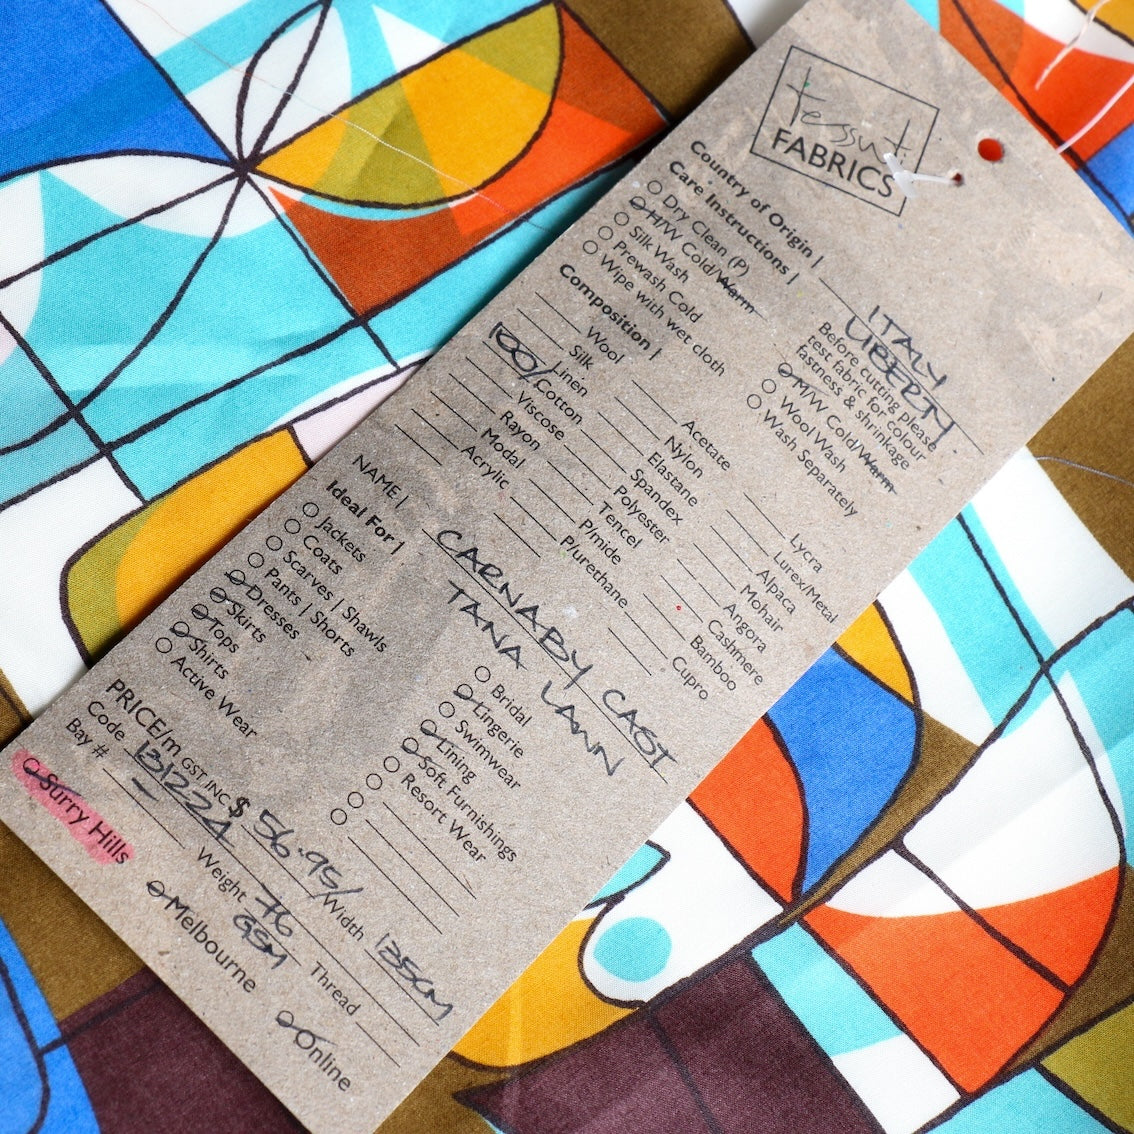 Tessuti
FABRICS
Country of Origin | ITALY
LIBERTY
Care Instructions |
Dry Clean (P)
H/W Cold/Warm
Silk Wash
Prewash Cold
Wipe with wet cloth
Before cutting please
test fabric for colour
fastness & shrinkage
M/W Cold/Warm
Wool Wash
Wash Separately
Composition |
Wool
Silk
Linen
100/ Cotton
Viscose
Rayon
Modal
Acrylic
Acetate
Nylon
Elastane
Spandex
Polyester
Tencel
P/mide
P/urethane
Lycra
Lurex/Metal
Alpaca
Mohair
Angora
Cashmere
Bamboo
Cupro
NAME | CARNABY CAST
TANA LAWN
Ideal For |
Jackets
Coats
Scarves | Shawls
Pants | Shorts
Dresses
Skirts
Tops
Shirts
Active Wear
Bridal
Lingerie
Swimwear
Lining
Soft Furnishings
Resort Wear
PRICE/m GST INC $ 56.95/ Width 125CM
Code 131222A Weight 76 GSM Thread
Bay # -
Surry Hills
Melbourne
Online